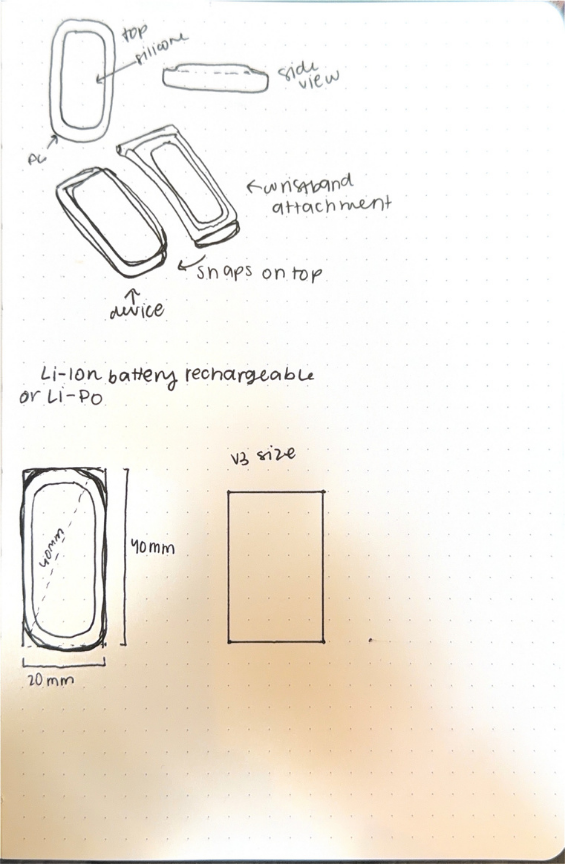 top
silicone
side
view
PC
wristband
attachment
snaps on top
device
Li-Ion battery rechargeable
or Li-Po
V3 size
40mm
40mm
20 mm